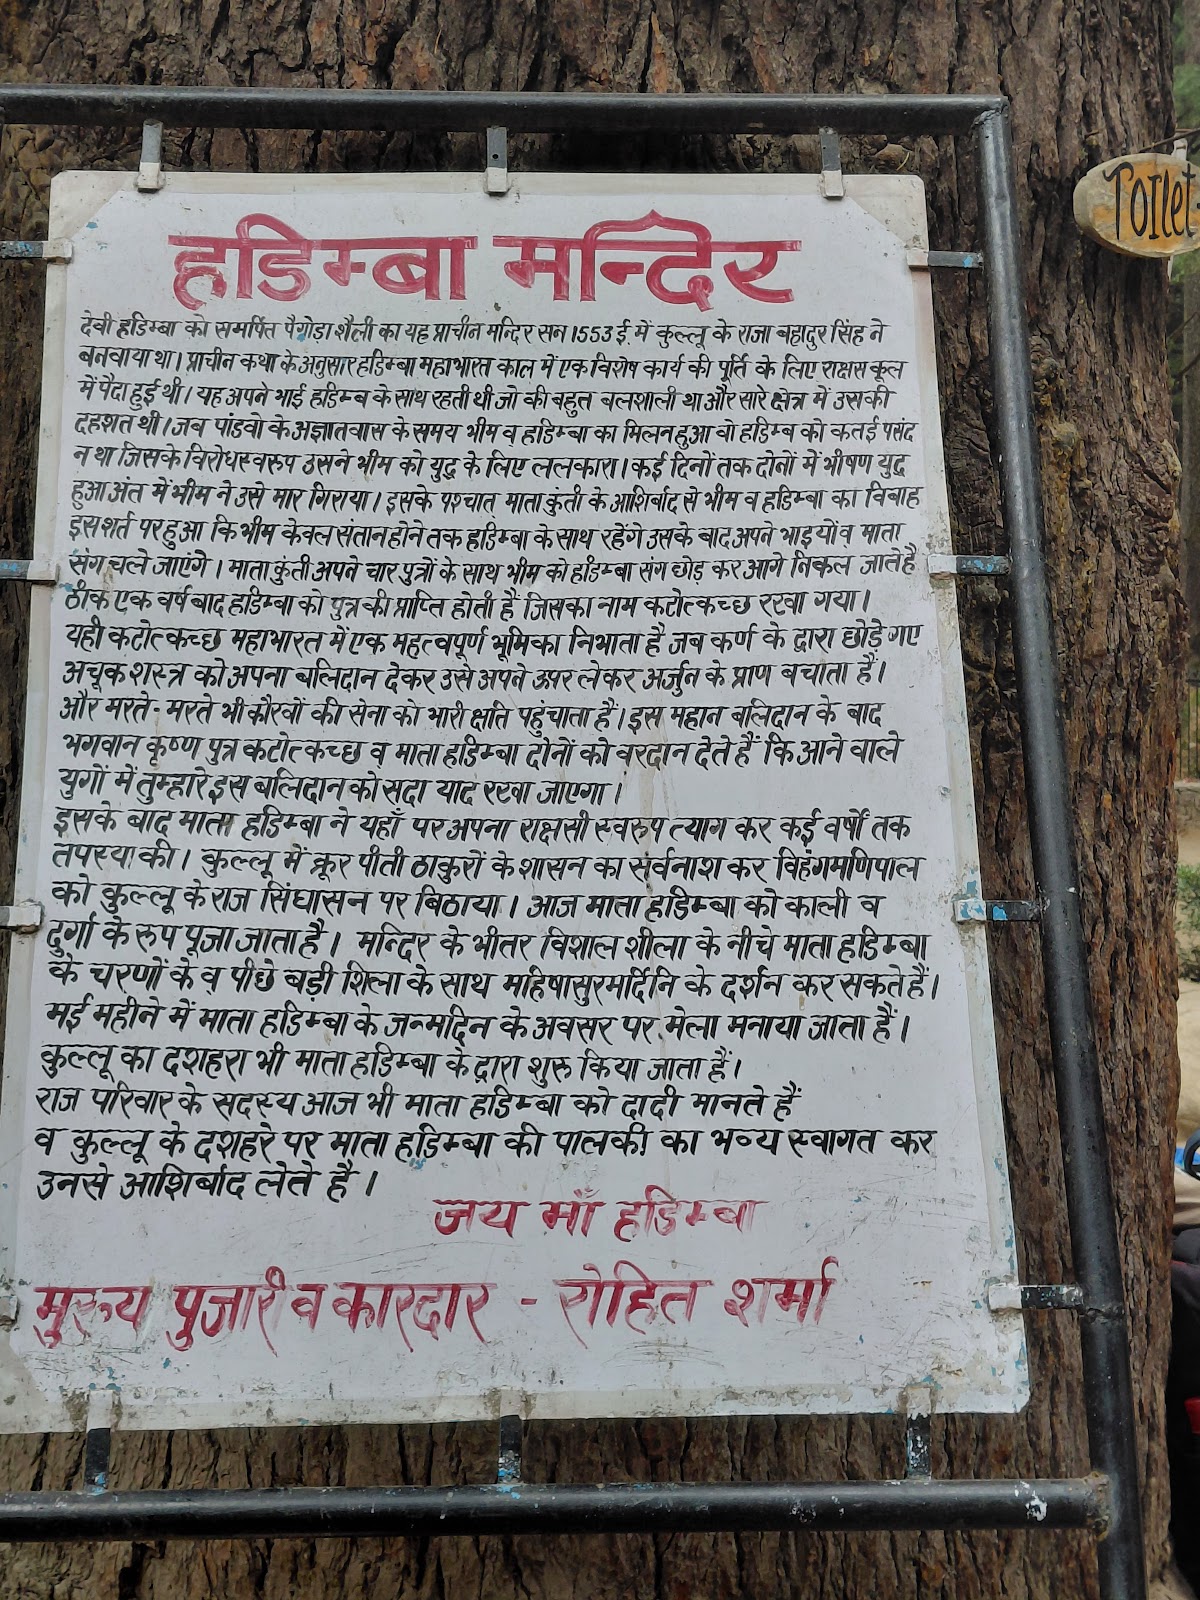 हडिम्बा मन्दिर
Toilet
देवी हडिम्बा को समर्पित पैगोड़ा शैली का यह प्राचीन मन्दिर सन 1553 ई. में कुल्लू के राजा बहादुर सिंह ने
बनवाया था। प्राचीन कथा के अनुसार हडिम्बा महाभारत काल में एक विशेष कार्य की पूर्ति के लिए राक्षस कूल
में पैदा हुई थी। यह अपने भाई हडिम्ब के साथ रहती थी जो की बहुत बलशाली था और सारे क्षेत्र में उसकी
दहशत थी। जब पांडवो के अज्ञातवास के समय भीम व हडिम्बा का मिलन हुआ वो हडिम्ब को कतई पसंद
न था जिसके विरोधस्वरुप उसने भीम को युद्ध के लिए ललकारा। कई दिनों तक दोनों में भीषण युद्ध
हुआ अंत में भीम ने उसे मार गिराया। इसके पश्चात् माता कुंती के आशिर्बाद से भीम व हडिम्बा का विबाह
इस शर्त पर हुआ कि भीम केवल संतान होने तक हडिम्बा के साथ रहेंगे उसके बाद अपने भाइयों व माता
संग चले जाएंगे। माता कुंती अपने चार पुत्रों के साथ भीम को हडिम्बा संग छोड़ कर आगे निकल जाते है
ठीक एक वर्ष बाद हडिम्बा को पुत्र की प्राप्ति होती हैं जिसका नाम कटोत्कच्छ रखा गया।
यही कटोत्कच्छ महाभारत में एक महत्वपूर्ण भूमिका निभाता है जब कर्ण के द्वारा छोड़े गए
अचूक शस्त्र को अपना बलिदान देकर उसे अपने ऊपर लेकर अर्जुन के प्राण बचाता हैं।
और मरते-मरते भी कौरवों की सेना को भारी क्षति पहुंचाता हैं। इस महान बलिदान के बाद
भगवान कृष्ण पुत्र कटोत्कच्छ व माता हडिम्बा दोनों को वरदान देते हैं कि आने वाले
युगों में तुम्हारे इस बलिदान को सदा याद रखा जाएगा।
इसके बाद माता हडिम्बा ने यहाँ पर अपना राक्षसी स्वरुप त्याग कर कई वर्षों तक
तपस्या की। कुल्लू में क्रूर पीती ठाकुरों के शासन का सर्वनाश कर विहंगमणिपाल
को कुल्लू के राज सिंघासन पर बिठाया। आज माता हडिम्बा को काली व
दुर्गा के रुप पूजा जाता है। मन्दिर के भीतर विशाल शीला के नीचे माता हडिम्बा
के चरणों के व पीछे बड़ी शिला के साथ महिषासुरमर्दिनि के दर्शन कर सकते हैं।
मई महीने में माता हडिम्बा के जन्मदिन के अवसर पर मेला मनाया जाता हैं।
कुल्लू का दशहरा भी माता हडिम्बा के द्वारा शुरु किया जाता हैं।
राज परिवार के सदस्य आज भी माता हडिम्बा को दादी मानते हैं
व कुल्लू के दशहरे पर माता हडिम्बा की पालकी का भव्य स्वागत कर
उनसे आशिर्बाद लेते है।
जय माँ हडिम्बा
मुख्य पुजारी व कारदार - रोहित शर्मा